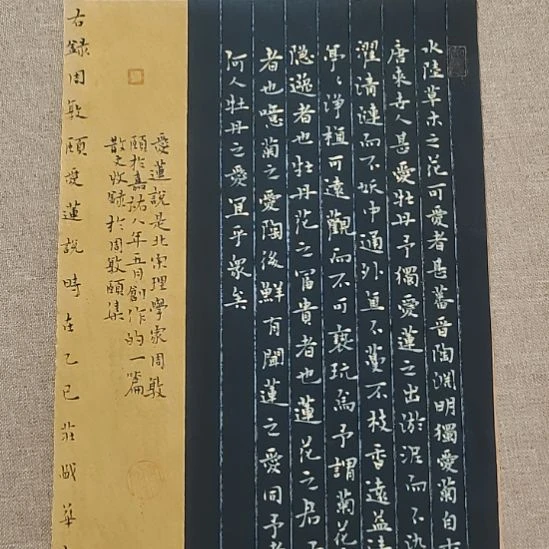 水陸草木之花可愛者甚蕃晉陶淵明獨愛菊自
唐來世人甚愛牡丹予獨愛蓮之出淤泥而不染
濯清漣而不妖中通外直不蔓不枝香遠益清
亭々淨植可遠觀而不可褻玩焉予謂菊花
隱逸者也牡丹花之富貴者也蓮花之君子
者也噫菊之愛陶後鮮有聞蓮之愛同予者
何人牡丹之愛宜乎眾矣
愛蓮說是北宋理學家周敦
頤於嘉祐八年五月創作的一篇
散文收錄於周敦頤集
右錄周敦頤愛蓮說時在乙巳莊成華